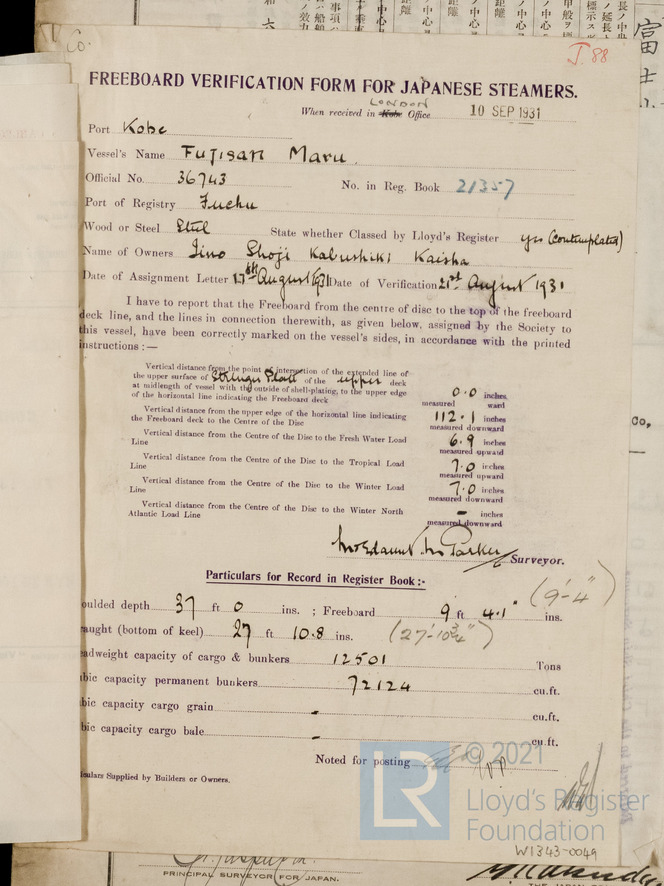 J. 88
FREEBOARD VERIFICATION FORM FOR JAPANESE STEAMERS.
LONDON
When received in Kobe Office 10 SEP 1931
Port Kobe
Vessel's Name Fujisan Maru.
Official No. 36743 No. in Reg. Book 21357
Port of Registry Fuchu
Wood or Steel Steel State whether Classed by Lloyd's Register yes (contemplated)
Name of Owners Iino Shoji Kabushiki Kaisha
Date of Assignment Letter 17th August 1931 Date of Verification 21st August 1931
I have to report that the Freeboard from the centre of disc to the top of the freeboard
deck line, and the lines in connection therewith, as given below, assigned by the Society to
this vessel, have been correctly marked on the vessel's sides, in accordance with the printed
instructions :—
Vertical distance from the point of intersection of the extended line of
the upper surface of Stringer Plate of the upper deck
at midlength of vessel with the outside of shell-plating, to the upper edge
of the horizontal line indicating the Freeboard deck 0.0 inches
measured ward
Vertical distance from the upper edge of the horizontal line indicating
the Freeboard deck to the Centre of the Disc 112.1 inches
measured downward
Vertical distance from the Centre of the Disc to the Fresh Water Load
Line 6.9 inches
measured upward
Vertical distance from the Centre of the Disc to the Tropical Load
Line 7.0 inches
measured upward
Vertical distance from the Centre of the Disc to the Winter Load
Line 7.0 inches
measured downward
Vertical distance from the Centre of the Disc to the Winter North
Atlantic Load Line - inches
measured downward
Surveyor.
Particulars for Record in Register Book :-
(9'-4")
oulded depth 37 ft 0 ins. ; Freeboard 9 ft 4.1" ins.
aught (bottom of keel) 27 ft 10.8 ins. (27'-10¾")
adweight capacity of cargo & bunkers 12501 Tons
bic capacity permanent bunkers 72124 cu.ft.
bic capacity cargo grain - cu.ft.
bic capacity cargo bale - cu.ft.
Noted for posting
culars Supplied by Builders or Owners.
LR © 2021
Lloyd's Register
Foundation
W1343-0049
PRINCIPAL SURVEYOR FOR JAPAN.
Co.
富士